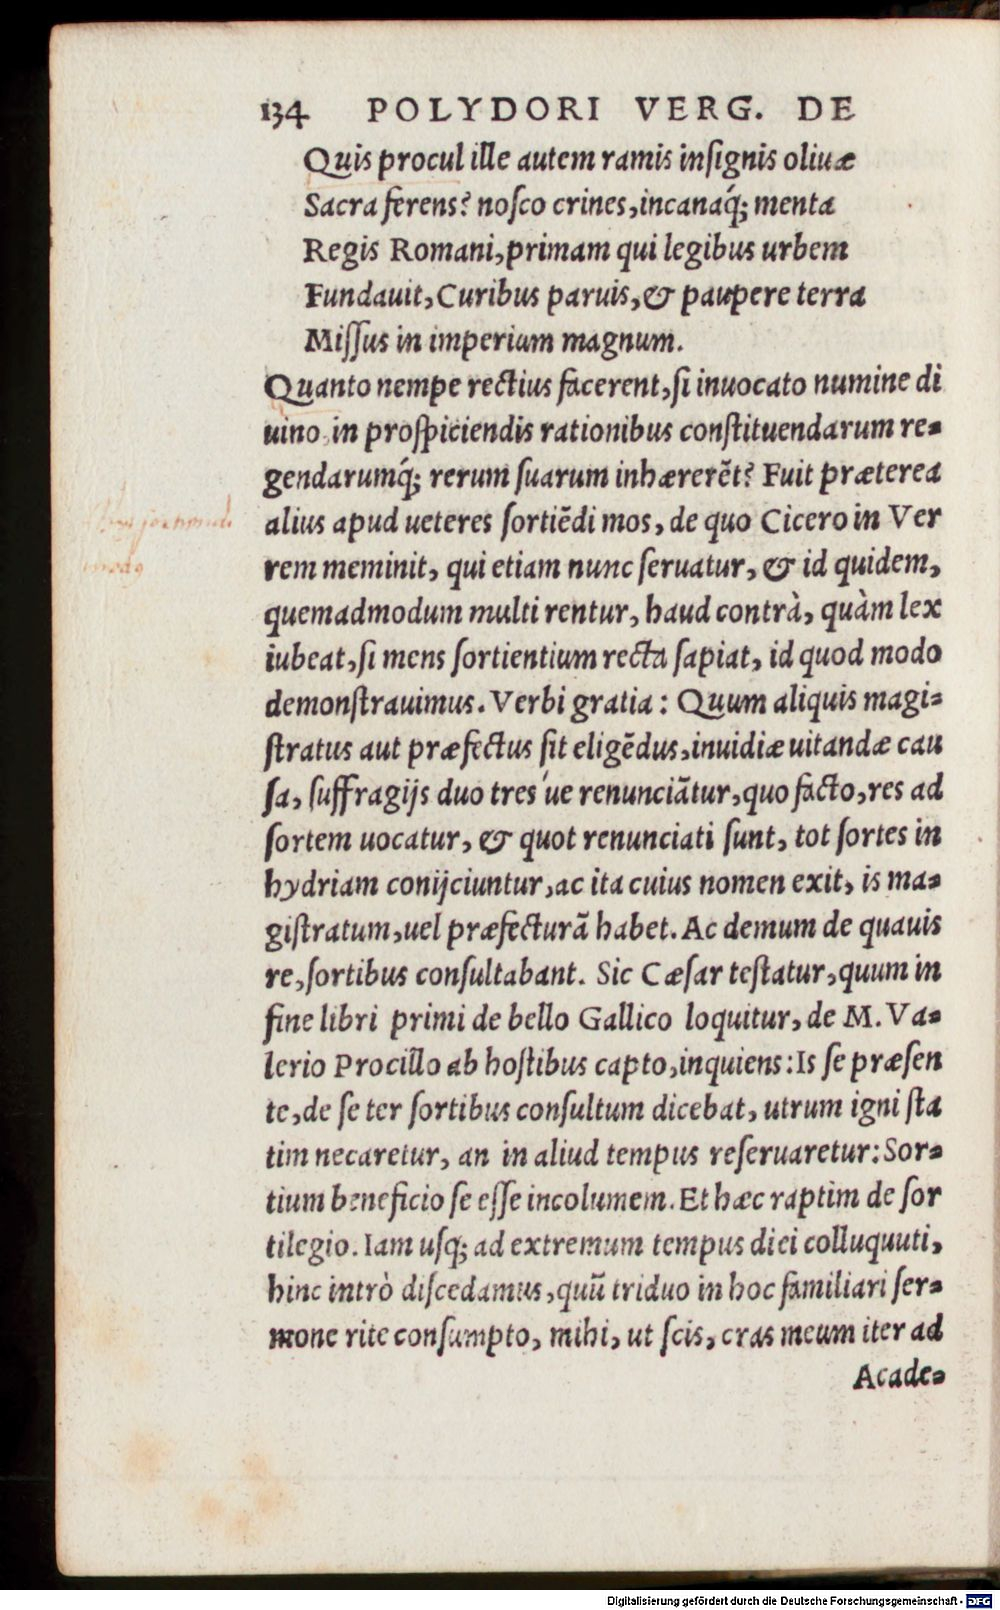 134 POLYDORI VERG. DE
Quis procul ille autem ramis inſignis oliuæ
Sacra ferens? noſco crines, incanaq́; menta
Regis Romani, primam qui legibus urbem
Fundauit, Curibus paruis, & paupere terra
Miſſus in imperium magnum.
Quanto nempe rectius facerent, ſi inuocato numine di
uino in proſpiciendis rationibus conſtituendarum re-
gendarumq́; rerum ſuarum inhærerẽt? Fuit præterea
alius apud ueteres ſortiẽdi mos, de quo Cicero in Ver
rem meminit, qui etiam nunc ſeruatur, & id quidem,
quemadmodum multi rentur, haud contrà, quàm lex
iubeat, ſi mens ſortientium recta ſapiat, id quod modo
demonſtrauimus. Verbi gratia: Quum aliquis magi-
ſtratus aut præfectus ſit eligẽdus, inuidiæ uitandæ cau
ſa, ſuffragijs duo tres úe renunciãtur, quo facto, res ad
ſortem uocatur, & quot renunciati ſunt, tot ſortes in
hydriam conijciuntur, ac ita cuius nomen exit, is ma-
giſtratum, uel præfecturã habet. Ac demum de quauis
re, ſortibus conſultabant. Sic Cæſar teſtatur, quum in
fine libri primi de bello Gallico loquitur, de M. Va-
lerio Procillo ab hoſtibus capto, inquiens: Is ſe præſen
te, de ſe ter ſortibus conſultum dicebat, utrum igni ſta
tim necaretur, an in aliud tempus reſeruaretur: Sor-
tium beneficio ſe eſſe incolumem. Et hæc raptim de ſor
tilegio. Iam uſq; ad extremum tempus diei colluquuti,
hinc intrò diſcedamus, quũ triduo in hoc familiari ſer-
mone rite conſumpto, mihi, ut ſcis, cras meum iter ad
Acade-
modo
Digitalisierung gefördert durch die Deutsche Forschungsgemeinschaft - DFG